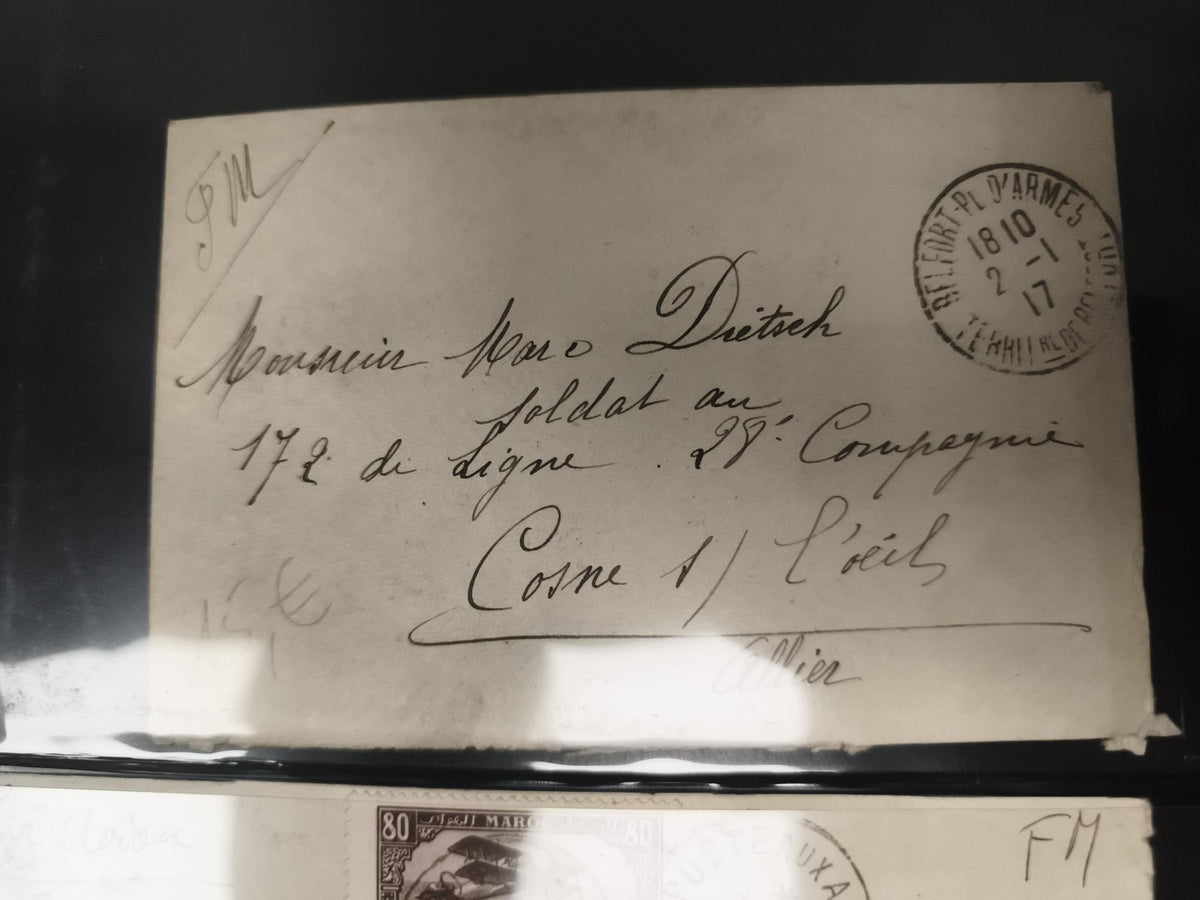 FM
BELFORT-PL. D'ARMES
1810
2 -1
17
TERRIT
Monsieur Marc Dietsch
soldat au
172 de Ligne . 28e Compagnie
Cosne s/ l'oeil
Allier
15 €
80 MAROC 80
FM